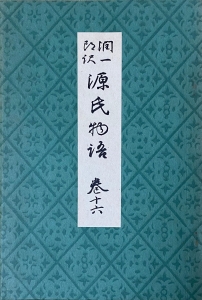 潤一郎訳
源氏物語
巻十六